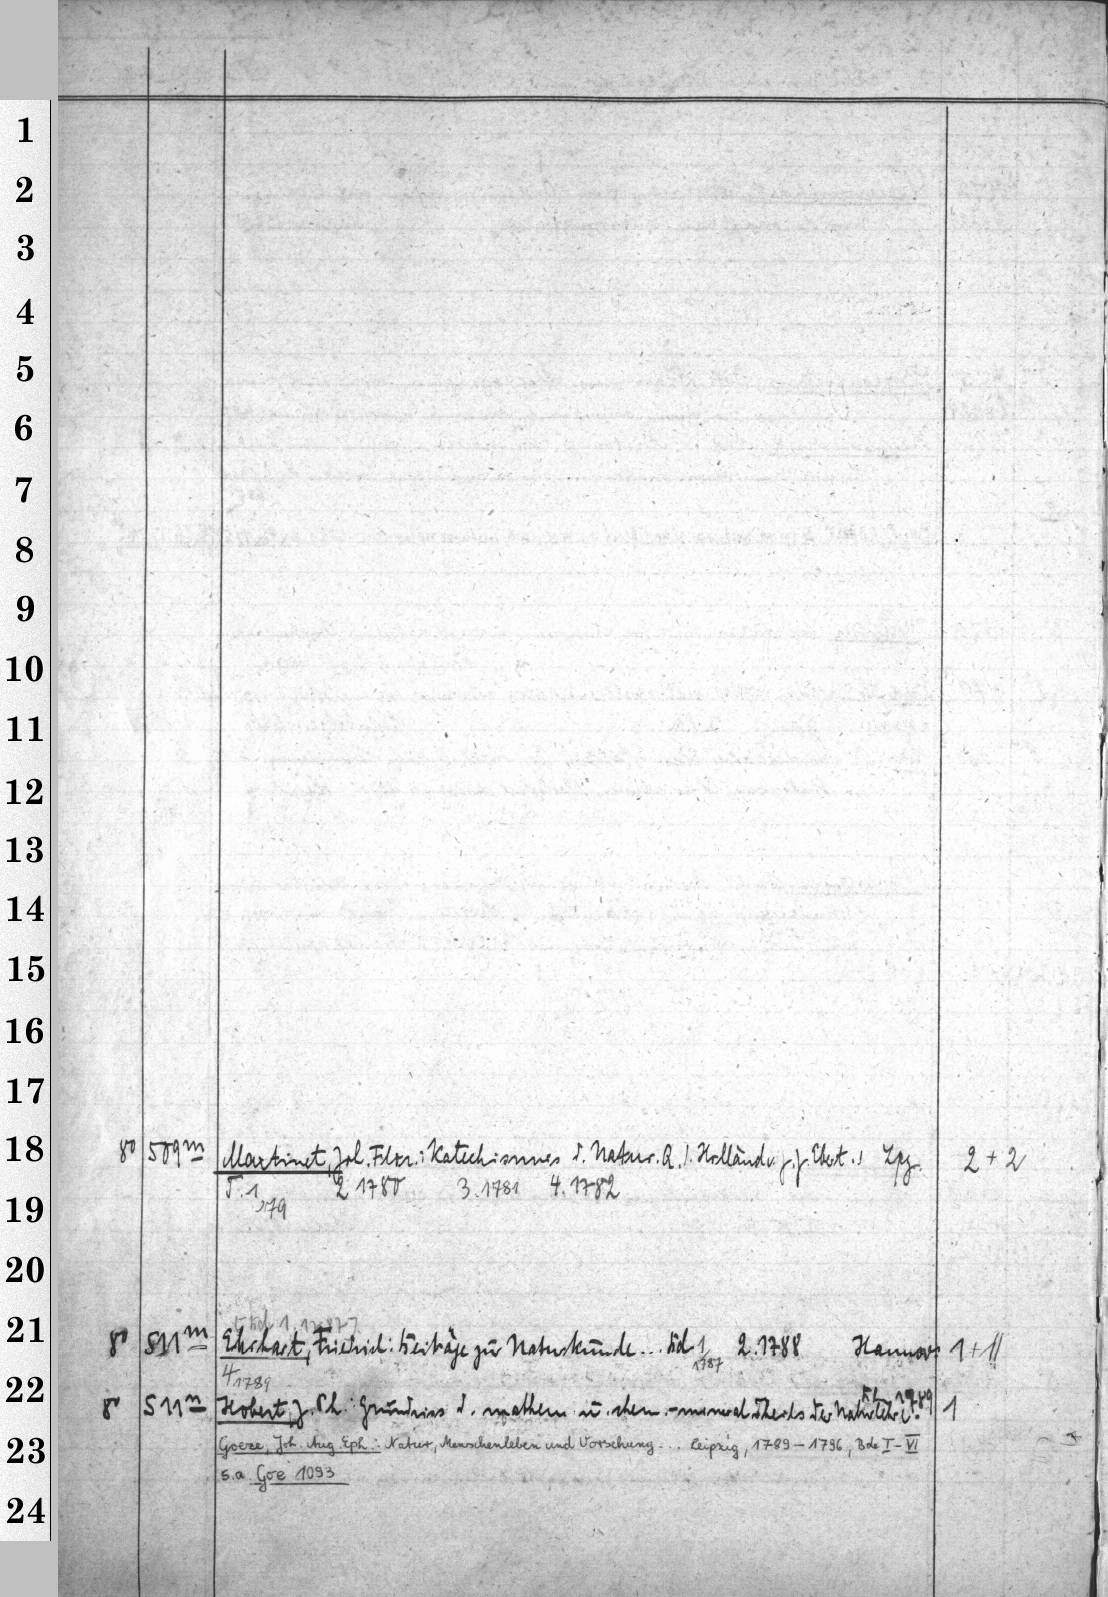 1
2
3
4
5
6
7
8
9
10
11
12
13
14
15
16
17
18
8° 509m Martinet, Joh. Flor.: Katechismus d. Natur. A. d. Holländ. v. J. J. Ebert. Lpz. 2 + 2
T. 1 179 2 1780 3. 1781 4. 1782
19
20
21
8° 511m Ehrhart, Friedrich: Beiträge zur Naturkunde... Bd 1, 1787 2. 1788 Hannov 1 + 11
4 1789
22
8° 511n Hobert, J. Ph.: Grundriss d. mathem u. chem.-mineral. Theils der Naturlehre. 1789 1
23
Goeze, Joh. Aug. Eph.: Natur, Menschenleben und Vorsehung... Leipzig, 1789-1796, Bde I-VI
s.a. Goe 1093
24